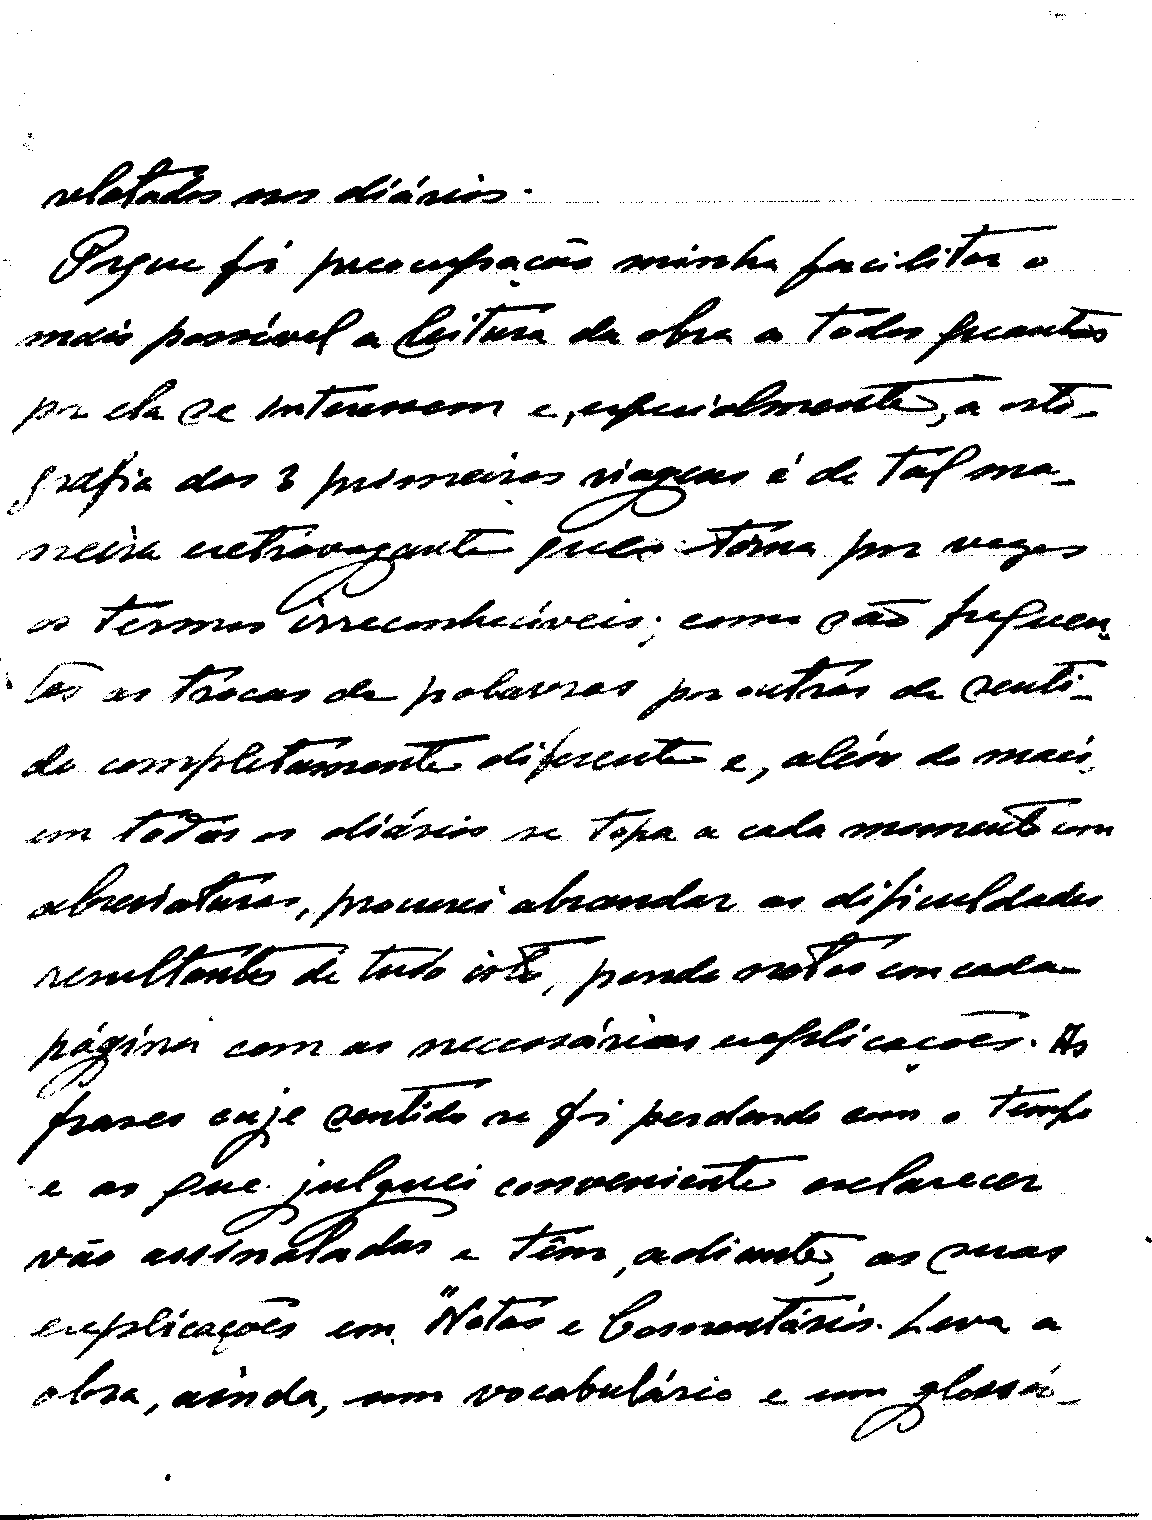 relatados nos diários.
Porque foi preocupação minha facilitar o
mais possível a leitura da obra a todos quantos
por ela se interessem e, especialmente, a orto-
grafia das 3 primeiras viagens é de tal ma-
neira extravagante que torna por vezes
os termos irreconhecíveis; como são frequen-
tes as trocas de palavras por outras de senti-
do completamente diferente e, além do mais,
em todos os diários se topa a cada momento com
abreviaturas, procurei abrandar as dificuldades
resultantes de tudo isto, pondo notas em cada
página com as necessárias explicações. As
frases cujo sentido se foi perdendo com o tempo
e as que julguei conveniente esclarecer
vão assinaladas e têm, adiante, as suas
explicações em "Notas e Comentários. Leva a
obra, ainda, um vocabulário e um glossá-